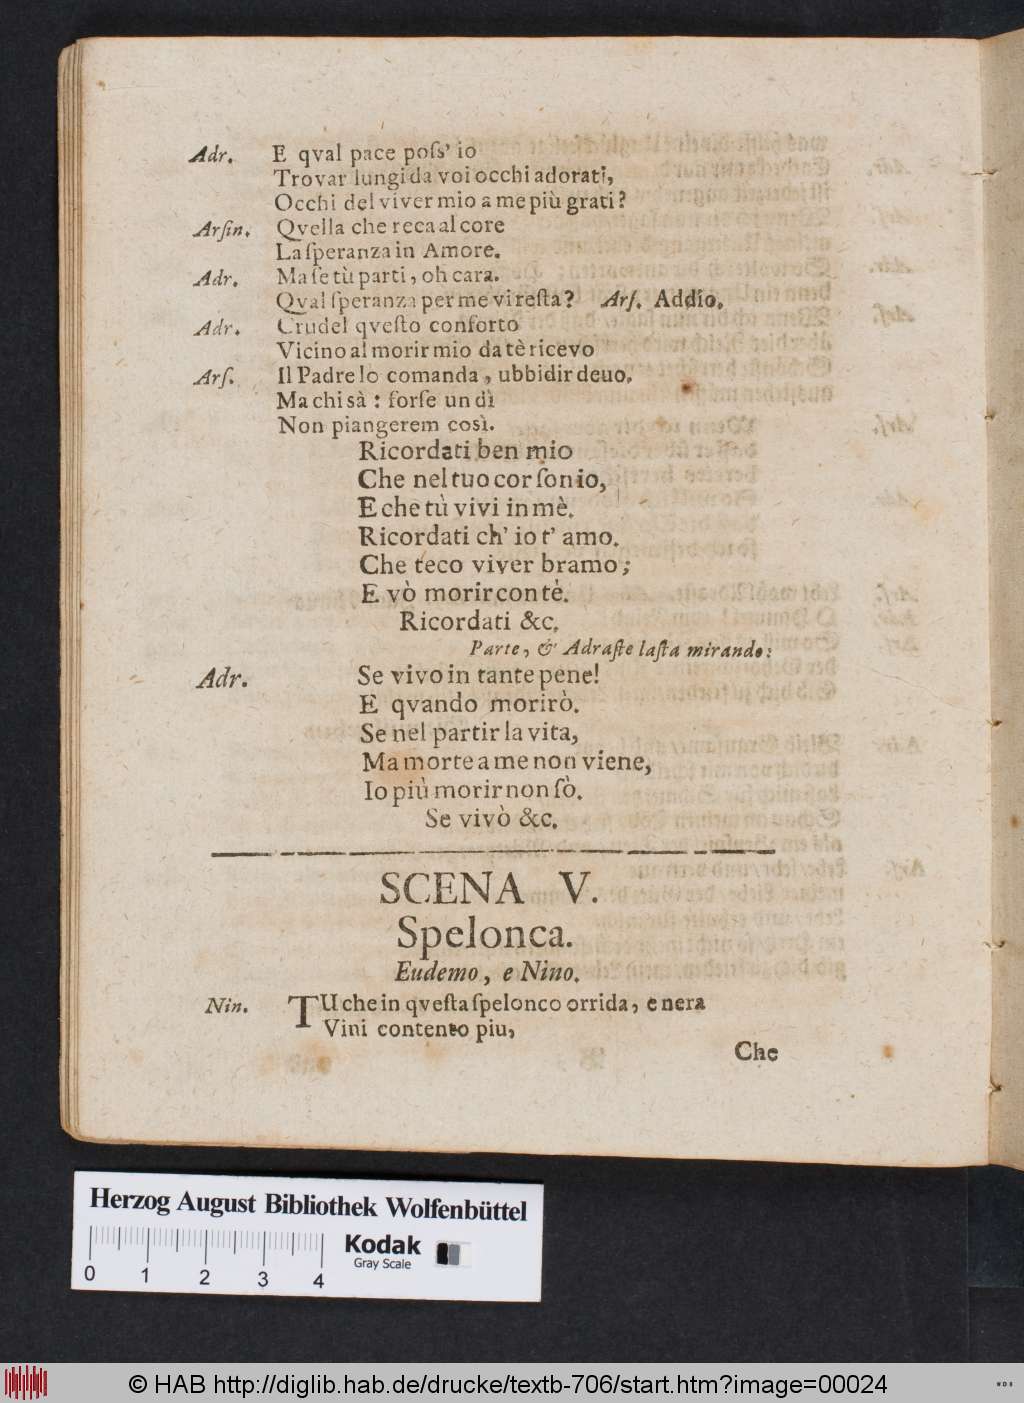 Adr. E qval pace poſs' io
Trovar lungi da voi occhi adorati,
Occhi del viver mio a me più grati?
Arſin. Qvella che reca al core
La ſperanza in Amore.
Adr. Ma ſe tù parti, oh cara.
Qval ſperanza per me vi reſta? Arſ. Addío.
Adr. Crudel qveſto conforto
Vicino al morir mio da tè ricevo
Arſ. Il Padre lo comanda, ubbidir deuo.
Ma chi sà: forſe un dì
Non piangerem così.
Ricordati ben mio
Che nel tuo cor ſon io,
E che tù vivi in mè.
Ricordati ch' io t' amo.
Che teco viver bramo;
E vò morir con tè.
Ricordati &c.
Parte, & Adraſte laſta mirando:
Adr. Se vivo in tante pene!
E qvando morirò.
Se nel partir la vita,
Ma morte a me non viene,
Io più morir non ſò.
Se vivò &c.
SCENA V.
Spelonca.
Eudemo, e Nino.
Nin. TU che in qveſta ſpelonco orrida, e nera
Vini contento piu,
Che
Herzog August Bibliothek Wolfenbüttel
0 1 2 3 4
Kodak
Gray Scale
© HAB http://diglib.hab.de/drucke/textb-706/start.htm?image=00024